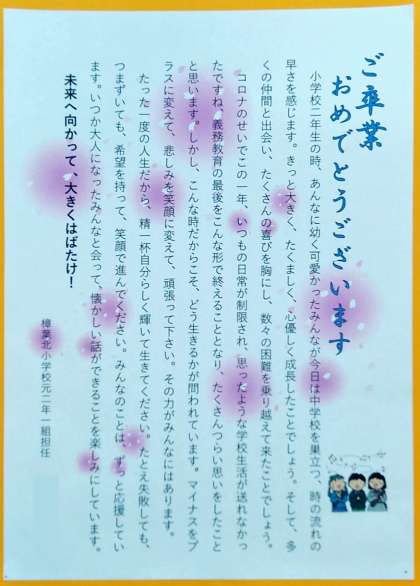 ご卒業
おめでとうございます
小学校二年生の時、あんなに幼く可愛かったみんなが今日は中学校を巣立つ、時の流れの
早さを感じます。きっと大きく、たくましく、心優しく成長したことでしょう。そして、多
くの仲間と出会い、たくさんの喜びを胸にし、数々の困難を乗り越えて来たことでしょう。
コロナのせいでこの一年、いつもの日常が制限され、思ったような学校生活が送れなかっ
たですね、義務教育の最後をこんな形で終えることとなり、たくさんつらい思いをしたこと
と思います。しかし、こんな時だからこそ、どう生きるかが問われています。マイナスをプ
ラスに変えて、悲しみを笑顔に変えて、頑張って下さい。その力がみんなにはあります。
たった一度の人生だから、精一杯自分らしく輝いて生きてください。たとえ失敗しても、
つまずいても、希望を持って、笑顔で進んでください。みんなのことは、ずっと応援してい
ます。いつか大人になったみんなと会って、懐かしい話ができることを楽しみにしています。
未来へ向かって、大きくはばたけ！
樟葉北小学校元二年一組担任